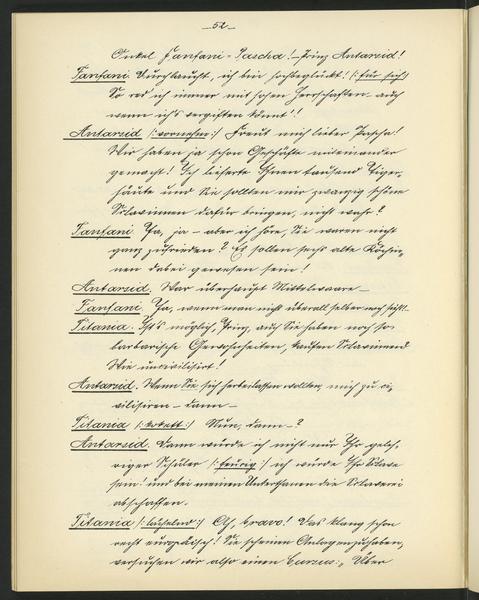 —52—
Onkel Fanfani-Pascha! — Prinz Antarsid!
Fanfani. Durchlaucht, ich bin hochbeglückt! (: für sich :)
So red ich immer mit hohen Herrschaften — auch
wenn ich's vergiften könnt'!
Antarsid (: vornehm :) Freut mich lieber Pascha!
Wir haben ja schon Geschäfte miteinander
gemacht! Ich lieferte Ihnen tausend Tiger-
häute und Sie sollten mir zwanzig schöne
Sclavinnen dafür bringen, nicht wahr?
Fanfani. Ja, ja — aber ich höre, Sie waren nicht
ganz zufrieden? Es sollen sechs alte Köchin-
nen dabei gewesen sein!
Antarsid. War überhaupt Mittelwaare —
Fanfani. Ja, wenn man nicht überall selber nach sieht! —
Titania. Ist's möglich, Prinz, auch Sie haben noch so
barbarische Gewohnheiten, kaufen Sclavinnen?
Wie uncivilisirt!
Antarsid. Wenn Sie sich herbeilassen wollten, mich zu ci-
vilisiren — dann —
Titania (: kokett :) Nun, dann —?
Antarsid. Dann würde ich nicht nur Ihr geleh-
riger Schüler (: feurig :) ich würde Ihr Sclave
sein! und bei meinen Unterthanen die Sclaverei
abschaffen.
Titania (: lächelnd :) Ah, bravo! Das klang schon
recht europäisch! Sie scheinen Anlagen zu haben,
versuchen wir also einen Cursus: „Über